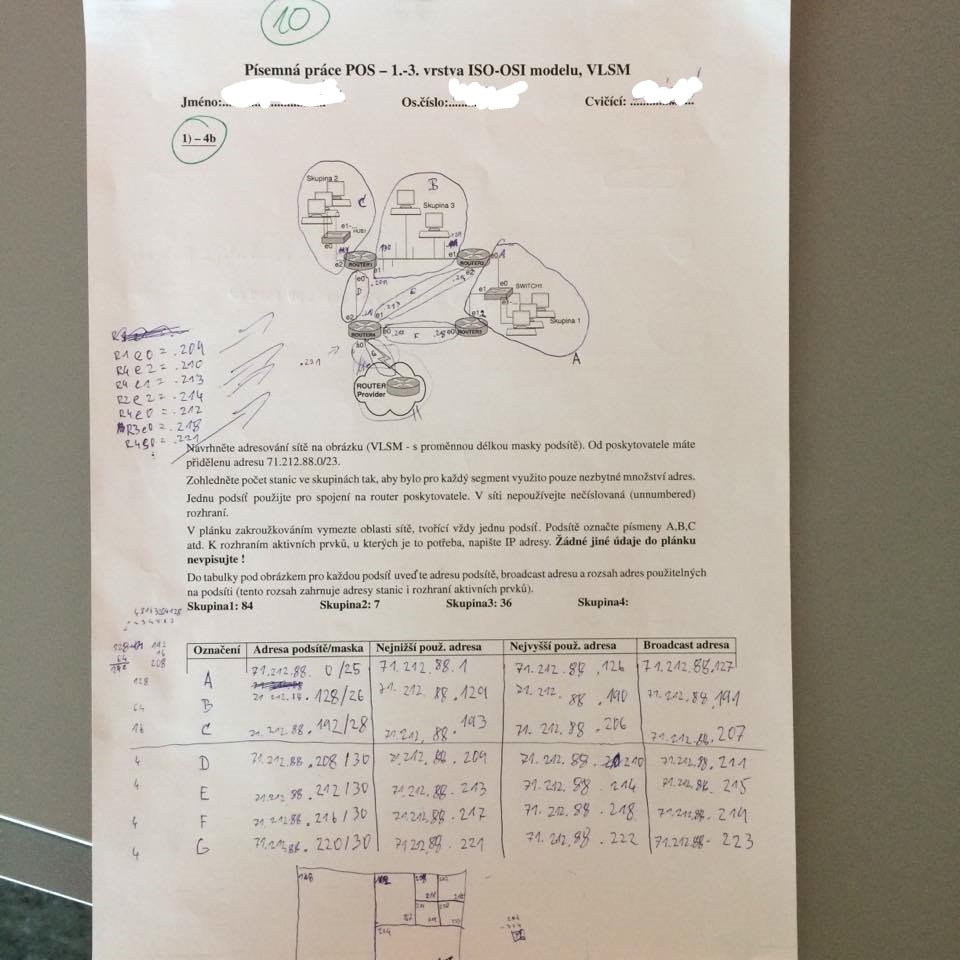 10
Písemná práce POS – 1.-3. vrstva ISO-OSI modelu, VLSM
Jméno:
Os.číslo:
Cvičící:
1) – 4b
Skupina 2
C
B
Skupina 3
e1
HUB1
e0
e2
ROUTER1
130
e1
e1
ROUTER2
e0
A
e2
e0
D
.209
E
.213
.214
e1
e0
SWITCH1
e1
Skupina 1
A
e2
e1
ROUTER4
e0
F
.218
e0
ROUTER3
s0
G
.221
ROUTER
Provider
R1 e0 = .209
R4 e2 = .210
R4 e1 = .213
R2 e2 = .214
R4 e0 = .212
R3e0 = .218
R4S0 = .221
Navrhněte adresování sítě na obrázku (VLSM - s proměnnou délkou masky podsítě). Od poskytovatele máte
přidělenu adresu 71.212.88.0/23.
Zohledněte počet stanic ve skupinách tak, aby bylo pro každý segment využito pouze nezbytné množství adres.
Jednu podsíť použijte pro spojení na router poskytovatele. V síti nepoužívejte nečíslovaná (unnumbered)
rozhraní.
V plánku zakroužkováním vymezte oblasti sítě, tvořící vždy jednu podsíť. Podsítě označte písmeny A,B,C
atd. K rozhraním aktivních prvků, u kterých je to potřeba, napište IP adresy. Žádné jiné údaje do plánku
nevpisujte !
Do tabulky pod obrázkem pro každou podsíť uveďte adresu podsítě, broadcast adresu a rozsah adres použitelných
na podsíti (tento rozsah zahrnuje adresy stanic i rozhraní aktivních prvků).
Skupina1: 84 Skupina2: 7 Skupina3: 36 Skupina4:
128 192
64 16
192 208
Označení Adresa podsítě/maska Nejnižší použ. adresa Nejvyšší použ. adresa Broadcast adresa
128 A 71.212.88. 0 /25 71.212.88.1 71.212.88 .126 71.212.88.127
64 B 71.212.88 .128/26 71.212.88 .129 71.212.88 .190 71.212.88 .191
16 C 71.212.88 .192/28 71.212.88 .193 71.212.88 .206 71.212.88.207
4 D 71.212.88.208/30 71.212.88 .209 71.212.88 .210 71.212.88 .211
4 E 71.212.88 .212/30 71.212.88 .213 71.212.88 .214 71.212.88 .215
4 F 71.212.88 .216/30 71.212.88 .217 71.212.88 .218 71.212.88 .219
4 G 71.212.88 .220/30 71.212.88 .221 71.212.88 .222 71.212.88 .223
128
224